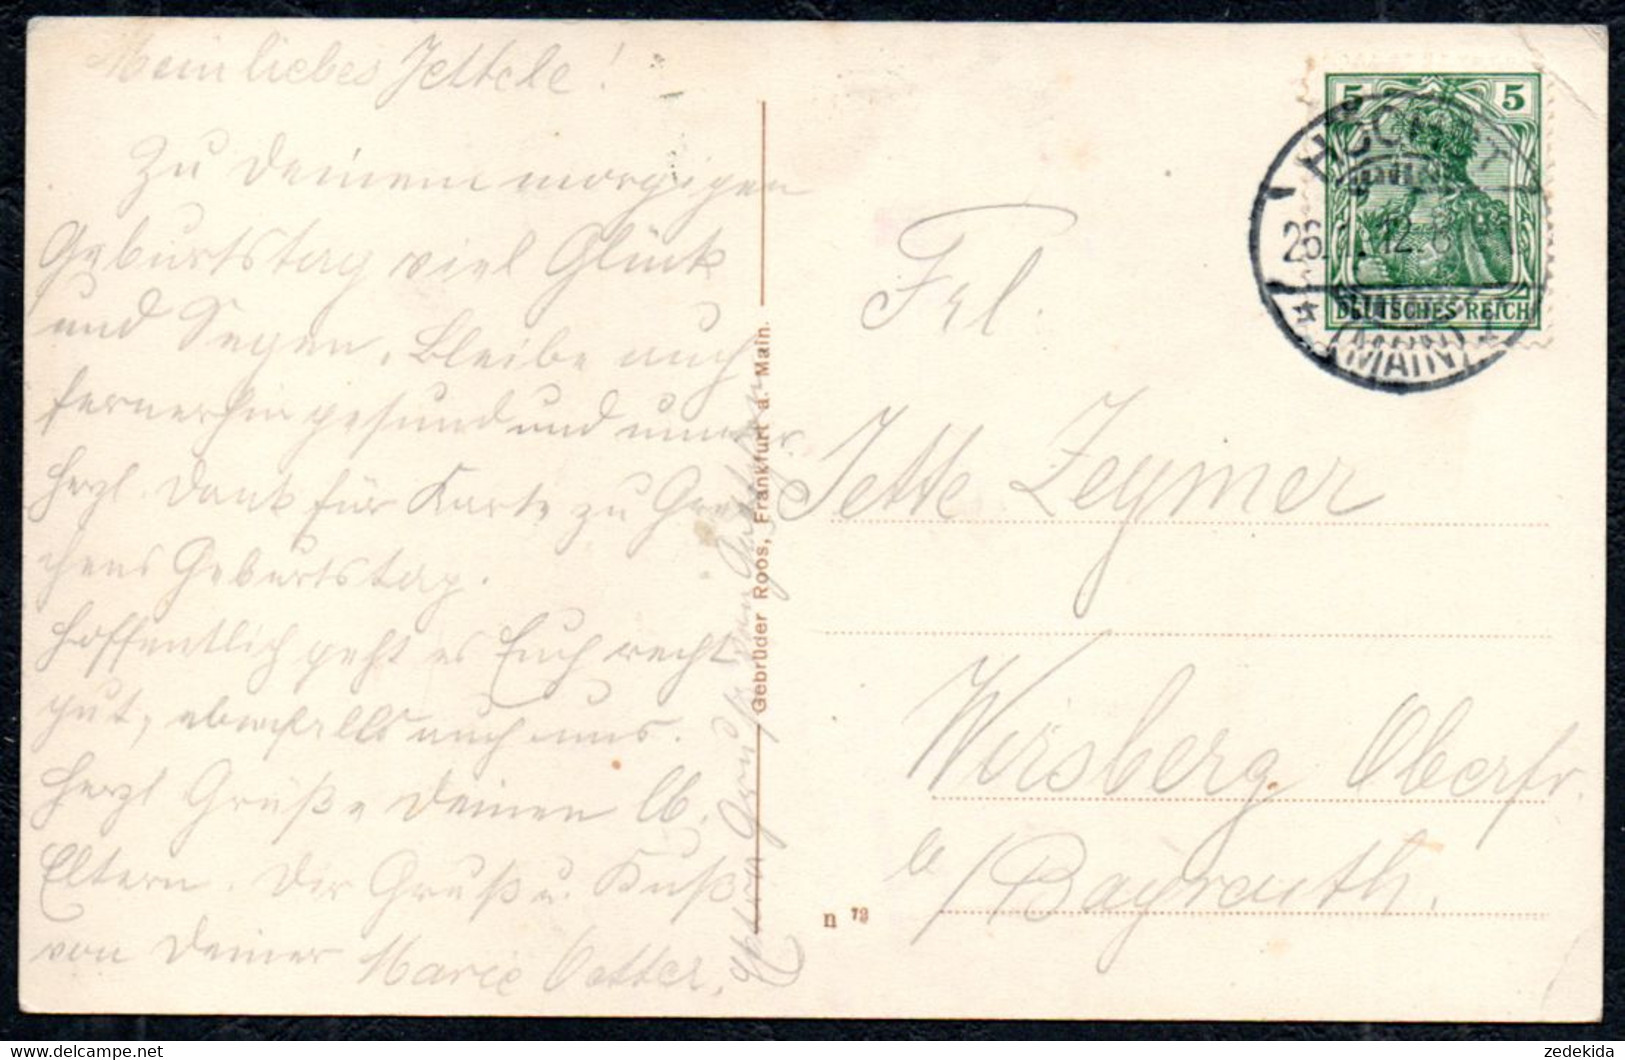 Mein liebes Jettele!
Zu Deinem morgigen
Geburtstag viel Glück
und Segen. Bleibe auch
fernerhin gesund und munter
Herzl. Dank für Karte zu Gret
chens Geburtstag.
Hoffentlich geht es Euch recht
gut, ebenfalls auch uns.
Herzl Grüße Deinen lb.
Eltern. Dir Gruß u. Kuß
von Deiner Marie Vetter.
Gebrüder Roos, Frankfurt a. Main.
n 73
5 5
DEUTSCHES REICH
HÖCHST
26. 12. 8
(MAIN)
Frl.
Jette Zeymer
Wirsberg Oberfr.
b/Bayreuth.
zedekida